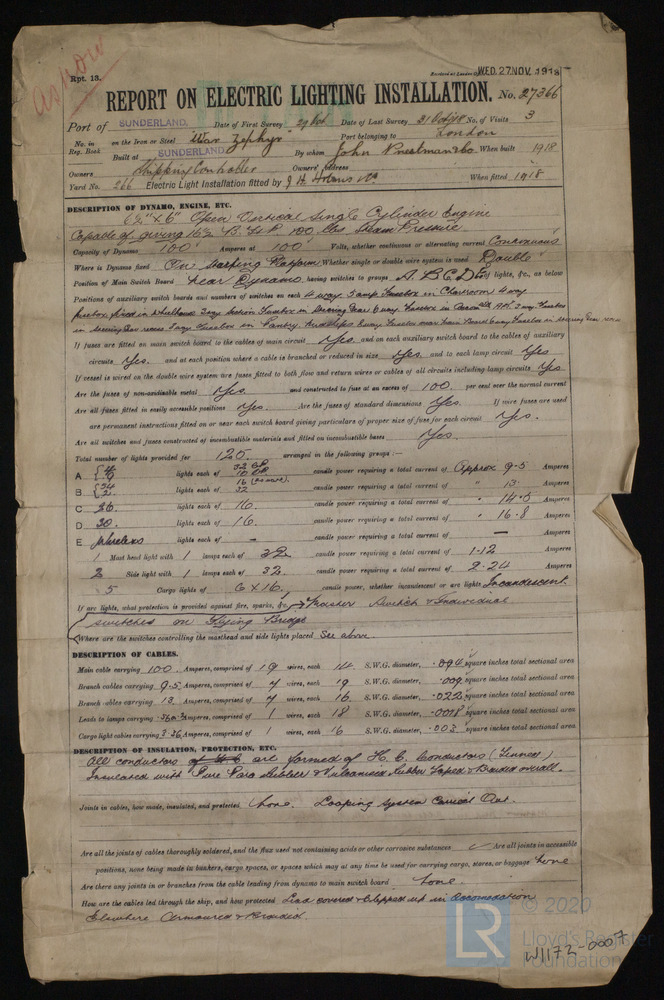 as now
Rpt. 13.
WED. 27 NOV. 1918
REPORT ON ELECTRIC LIGHTING INSTALLATION. No. 27366
Port of SUNDERLAND. Date of First Survey 29 Oct Date of Last Survey 31 Oct 18 No. of Visits 3
No. in Reg. Book on the Iron or Steel "War Zephyr" Port belonging to London
Built at SUNDERLAND By whom John Priestman & Co When built 1918
Owners Shipping Controller Owners' Address
Yard No. 266 Electric Light Installation fitted by J H Holmes & Co When fitted 1918
DESCRIPTION OF DYNAMO, ENGINE, ETC.
6½" x 6" Open Vertical Single Cylinder Engine
Capable of giving 16½ B.H.P. 100 lbs Steam Pressure
Capacity of Dynamo 100 Amperes at 100 Volts, whether continuous or alternating current Continuous
Where is Dynamo fixed On Starting Platform Whether single or double wire system is used Double
Position of Main Switch Board near Dynamo having switches to groups A B C D E of lights, &c., as below
Positions of auxiliary switch boards and numbers of switches on each 4 way 5 amp Fusebox in Chartroom 4 way
If fuses are fitted on main switch board to the cables of main circuit Yes and on each auxiliary switch board to the cables of auxiliary
circuits Yes and at each position where a cable is branched or reduced in size Yes and to each lamp circuit Yes
If vessel is wired on the double wire system are fuses fitted to both flow and return wires or cables of all circuits including lamp circuits Yes
Are the fuses of non-oxidizable metal Yes and constructed to fuse at an excess of 100 per cent over the normal current
Are all fuses fitted in easily accessible positions Yes Are the fuses of standard dimensions Yes If wire fuses are used
are permanent instructions fitted on or near each switch board giving particulars of proper size of fuse for each circuit Yes.
Are all switches and fuses constructed of incombustible materials and fitted on incombustible bases Yes.
Total number of lights provided for 120 arranged in the following groups :—
A lights each of candle power requiring a total current of Approx 9.5 Amperes
B lights each of 16 32 candle power requiring a total current of " 13 Amperes
C 36 lights each of 16. candle power requiring a total current of " 14.5 Amperes
D 30. lights each of 16. candle power requiring a total current of " 16.8 Amperes
E Wireless lights each of — candle power requiring a total current of — Amperes
1 Mast head light with 1 lamps each of 32 candle power requiring a total current of 1.12 Amperes
2 Side light with 1 lamps each of 32 candle power requiring a total current of 2.24 Amperes
5 Cargo lights of 6 x 16. candle power, whether incandescent or arc lights Incandescent.
If arc lights, what protection is provided against fire, sparks, &c. Master Switch & Individual
switches on Flying Bridge
Where are the switches controlling the masthead and side lights placed See above.
DESCRIPTION OF CABLES.
Main cable carrying 100 Amperes, comprised of 19 wires, each 14 S.W.G. diameter, .094 square inches total sectional area
Branch cables carrying 9.5 Amperes, comprised of 7 wires, each 19 S.W.G. diameter, .009 square inches total sectional area
Branch cables carrying 13 Amperes, comprised of 7 wires, each 16 S.W.G. diameter, .022 square inches total sectional area
Leads to lamps carrying Amperes, comprised of 1 wires, each 18 S.W.G. diameter, .0018 square inches total sectional area
Cargo light cables carrying 3.36 Amperes, comprised of 1 wires, each 16 S.W.G. diameter, .003 square inches total sectional area
DESCRIPTION OF INSULATION, PROTECTION, ETC.
All conductors are formed of H. C. Conductors (Tinned)
Insulated with Pure Para Rubber & Vulcanised Rubber Taped & Braided overall.
Joints in cables, how made, insulated, and protected None. Looping system Carried Out.
Are all the joints of cables thoroughly soldered, and the flux used not containing acids or other corrosive substances ✓ Are all joints in accessible
positions, none being made in bunkers, cargo spaces, or spaces which may at any time be used for carrying cargo, stores, or baggage None
Are there any joints in or branches from the cable leading from dynamo to main switch board None.
How are the cables led through the ship, and how protected Lead covered & Clipped up in Accomodation
Elsewhere Armoured & Braided.
LR © 2020
Lloyd's Register
Foundation
W1172-0007